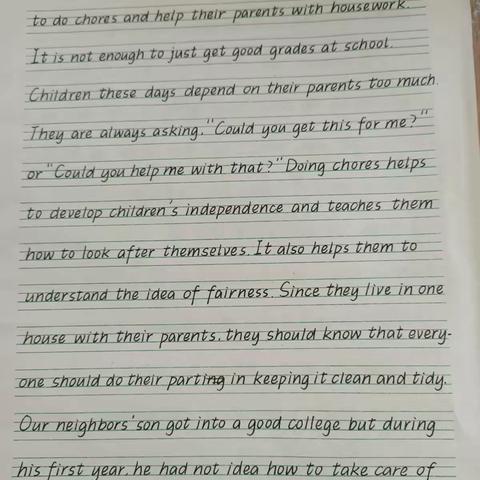 to do chores and help their parents with housework.
It is not enough to just get good grades at school.
Children these days depend on their parents too much.
They are always asking, "Could you get this for me?"
or "Could you help me with that?" Doing chores helps
to develop children's independence and teaches them
how to look after themselves. It also helps them to
understand the idea of fairness. Since they live in one
house with their parents, they should know that every-
one should do their parting in keeping it clean and tidy.
Our neighbors' son got into a good college but during
his first year, he had not idea how to take care of